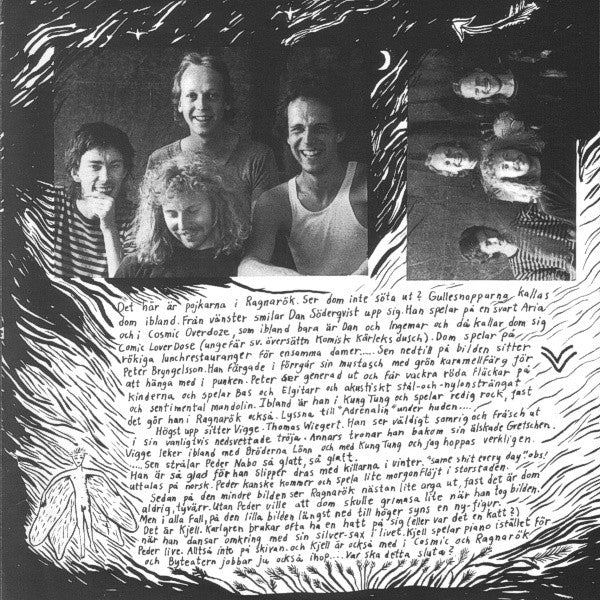 Det här är pojkarna i Ragnarök. Ser dom inte söta ut? Gullesnopparna kallas
dom ibland. Från vänster smilar Dan Södergvist upp sig. Han spelar på en svart Aria
och i Cosmic Overdoze, som ibland bara är Dan och Ingemar och då kallar dom sig
Comic LoverDose (ungefär sv. översättn Komisk Kärleksdusch). Dom spelar på
rökiga lunchrestauranger för ensamma damer..... Sen nedtill på bilden sitter
Peter Bryngelsson. Han färgade i förrgår sin mustasch med grön karamellfärg för
att hänga med i punken. Peter ser generad ut och får vackra röda fläckar på
kinderna och spelar Bas och Elgitarr och akustiskt stål-och-nylonsträngat
och sentimental mandolin. Ibland är han i Kung Tung och spelar redig rock, fast
det gör han i Ragnarök också. Lyssna till "Adrenalin" under huden....
Högst upp sitter Vigge - Thomas Wiegert. Han ser väldigt somrig och fräsch ut
i sin vanligtvis nedsvettade tröja. Annars tronar han bakom sin älskade Gretschen.
Vigge leker ibland med Bröderna Lönn och med Kung Tung och jag hoppas verkligen.
....Sen strålar Peder Nabo så glatt, så glatt.
Han är så glad för han slipper dras med killarna i vinter "same shit every day" obs!
uttalas på norsk. Peder kanske kommer och spela lite morgonflöjt i storstaden.
Sedan på den mindre bilden ser Ragnarök nästan lite arga ut, fast det är dom
aldrig, tyvärr. Utan Peder ville att dom skulle grimasa lite när han tog bilden.
Men i alla fall, på den lilla bilden längst ned till höger syns en ny figur.
Det är Kjell. Karlgren brukar ofta ha en hatt på sig (eller var det en katt?)
när han dansar omkring med sin silver-sax i livet. Kjell spelar piano istället för
Peder live. Alltså inte på skivan. och Kjell är också med i Cosmic och Ragnarök
och Byteatern jobbar ju också ihop.... Var ska detta sluta?